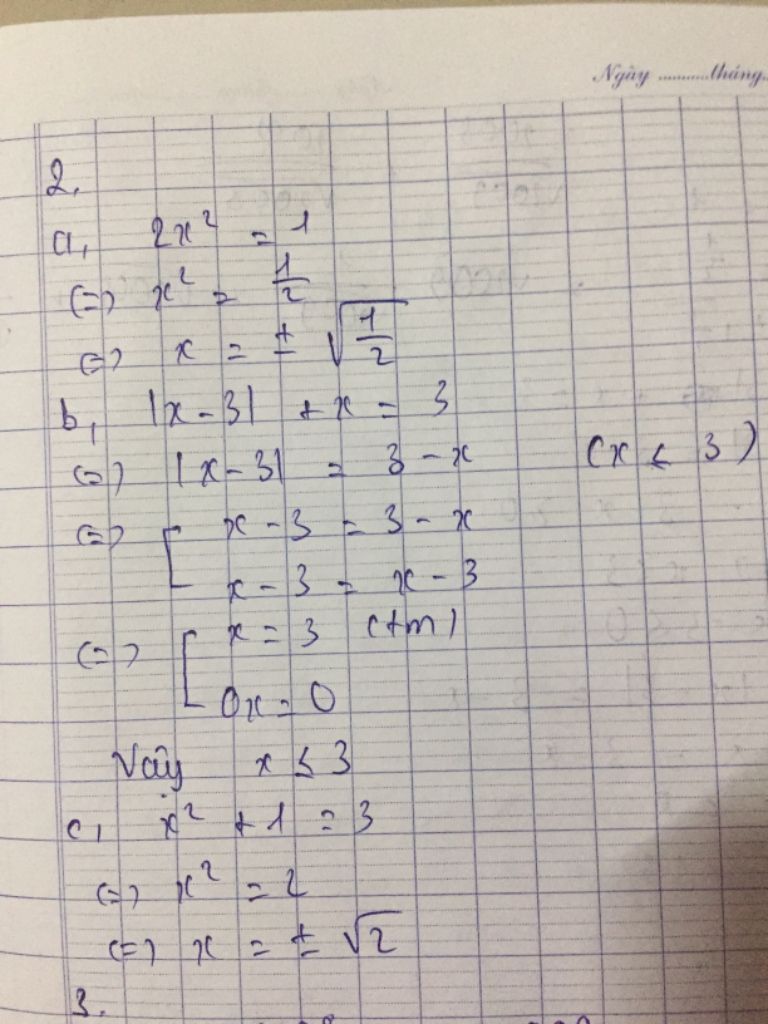 Ngày ..........tháng..
2,
a, 2x² = 1
(=) x² = 1/2
(=) x = ± √(1/2)
b, |x - 3| + x = 3
(=) |x - 3| = 3 - x (x ≤ 3)
(=) [ x - 3 = 3 - x
x - 3 = x - 3
(=) [ x = 3 (tm)
0x = 0
Vậy x ≤ 3
c, x² + 1 = 3
(=) x² = 2
(=) x = ± √2
3.